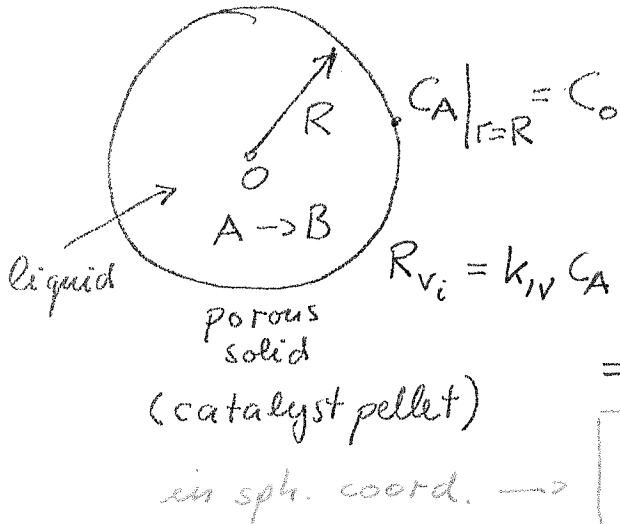 R
C_A|_{r=R} = C_o
O
A -> B
liquid
R_{v_i} = k_{1v} C_A
porous
solid
=
(catalyst pellet)
in sph. coord. →